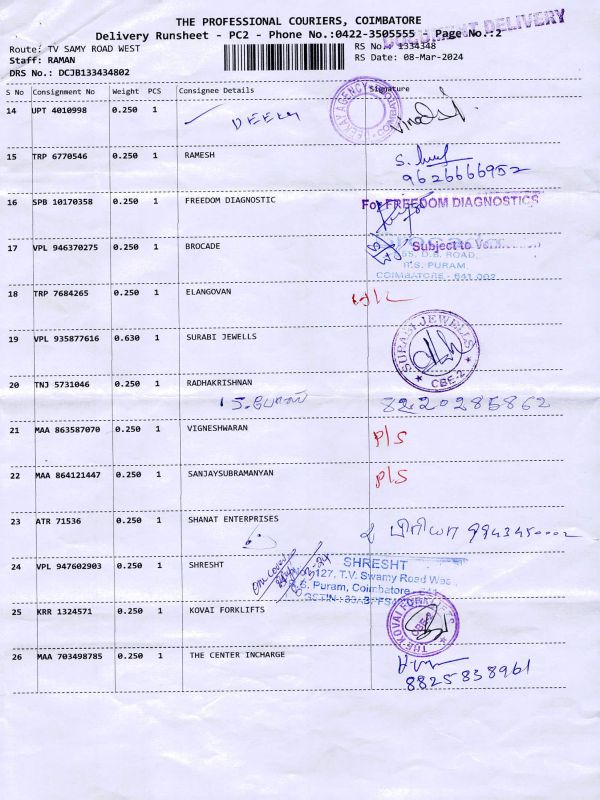 THE PROFESSIONAL COURIERS, COIMBATORE
DOCUMENT DELIVERY
Delivery Runsheet - PC2 - Phone No.:0422-3505555 - Page No.:2
Route: TV SAMY ROAD WEST
RS No.: 1334348
Staff: RAMAN
RS Date: 08-Mar-2024
DRS No.: DCJB133434802
S No Consignment No Weight PCS Consignee Details Signature
14 UPT 4010998 0.250 1
15 TRP 6770546 0.250 1 RAMESH
9626666952
16 SPB 10170358 0.250 1 FREEDOM DIAGNOSTIC For FREEDOM DIAGNOSTICS
17 VPL 946370275 0.250 1 BROCADE Subject to
D.B. ROAD,
R.S. PURAM,
COIMBATORE - 641 002
18 TRP 7684265 0.250 1 ELANGOVAN
19 VPL 935877616 0.630 1 SURABI JEWELLS SURABI JEWELLS
CBE-2
20 TNJ 5731046 0.250 1 RADHAKRISHNAN
8220285862
21 MAA 863587070 0.250 1 VIGNESHWARAN P/S
22 MAA 864121447 0.250 1 SANJAYSUBRAMANYAN P/S
23 ATR 71536 0.250 1 SHANAT ENTERPRISES
24 VPL 947602903 0.250 1 SHRESHT SHRESHT
127, T.V. Swamy Road West
R.S. Puram, Coimbatore
25 KRR 1324571 0.250 1 KOVAI FORKLIFTS THE KOVAI FORKLIFTS
26 MAA 703498785 0.250 1 THE CENTER INCHARGE
8825838961